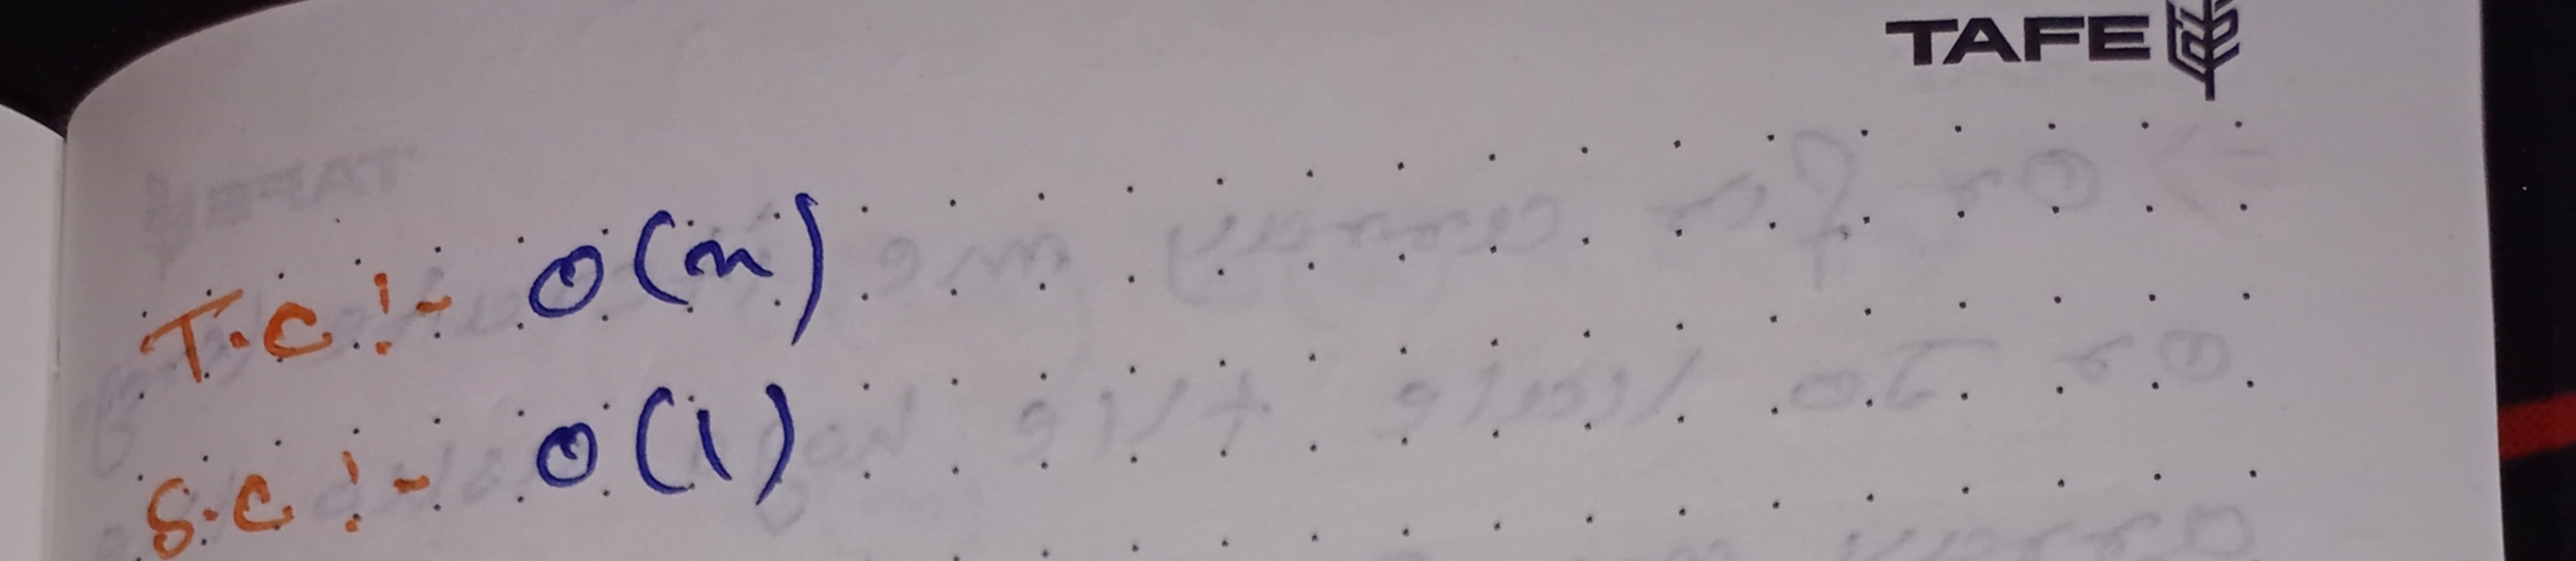 TAFE
T.C :- O(n)
S.C :- O(1)